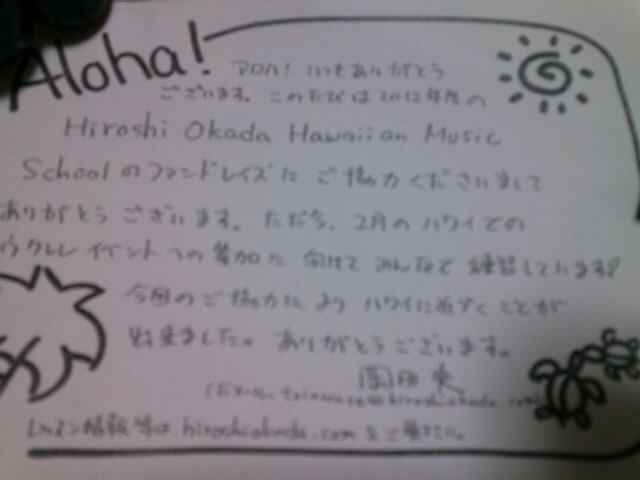 Aloha!
アロハ! いつもありがとう
ございます。このたびは2012年度の
Hiroshi Okada Hawaiian Music
School のファンドレイズに ご協力くださいまして
ありがとうございます。ただ今、2月の ハワイでの
ウクレレ イベントへの参加に 向けて みんなで 練習しています!
今回のご協力により ハワイに近づくことが
出来ました。ありがとうございます。
hiroshiokada.com
レッスン情報等は hiroshiokada.com をご覧下さい。